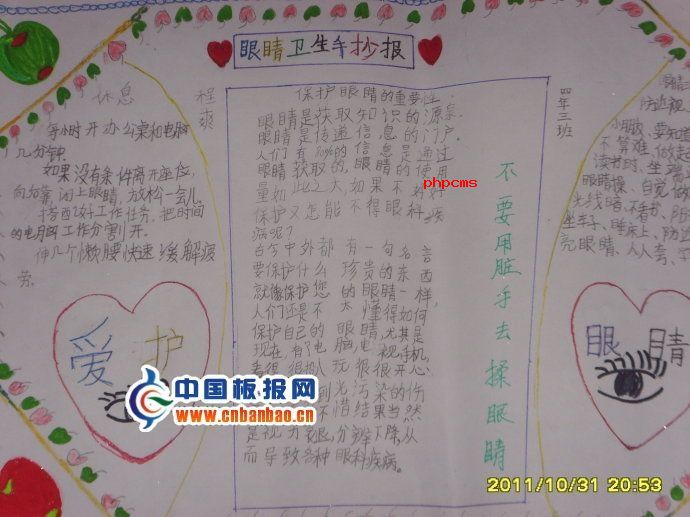 眼睛卫生手抄报
休息
程爽
每小时开办公桌和电脑
几分钟
如果没有条件离开座位,
向后靠,闭上眼睛,放松一会儿.
搭配好工作任务,把时间
的电脑工作分割开.
伸几个懒腰快速缓解疲
劳.
爱护
保护眼睛的重要性:
眼睛是获取知识的源泉.
眼睛是传递信息的门户.
人们有70%的信息是通过
眼睛获取的,眼睛的使用
量如此之大,如果不好好
保护又怎能不得眼科疾
病呢?
古今中外都有一句名言
要保护什么珍贵的东西
就像保护您的眼睛一样,
人们还是不太懂得如何
保护自己的眼睛,尤其是
现在,有电脑,电视,手机,
看得很投入玩得很开心:
到光污染的伤
不惜结果当然
是视力衰退,分辨下降从
而导致各种眼科疾病。
不要用脏手去揉眼睛
四年三班
眼睛
防近视
小朋友,要知道
不算难,做起
读书时,坐端
眼睛操,自觉做
光线暗,不看书,阳
坐车子,睡床上,防边
亮眼睛,人人夸,
眼睛
phpcms
中国板报网
www.cnbanbao.cn
2011/10/31 20:53